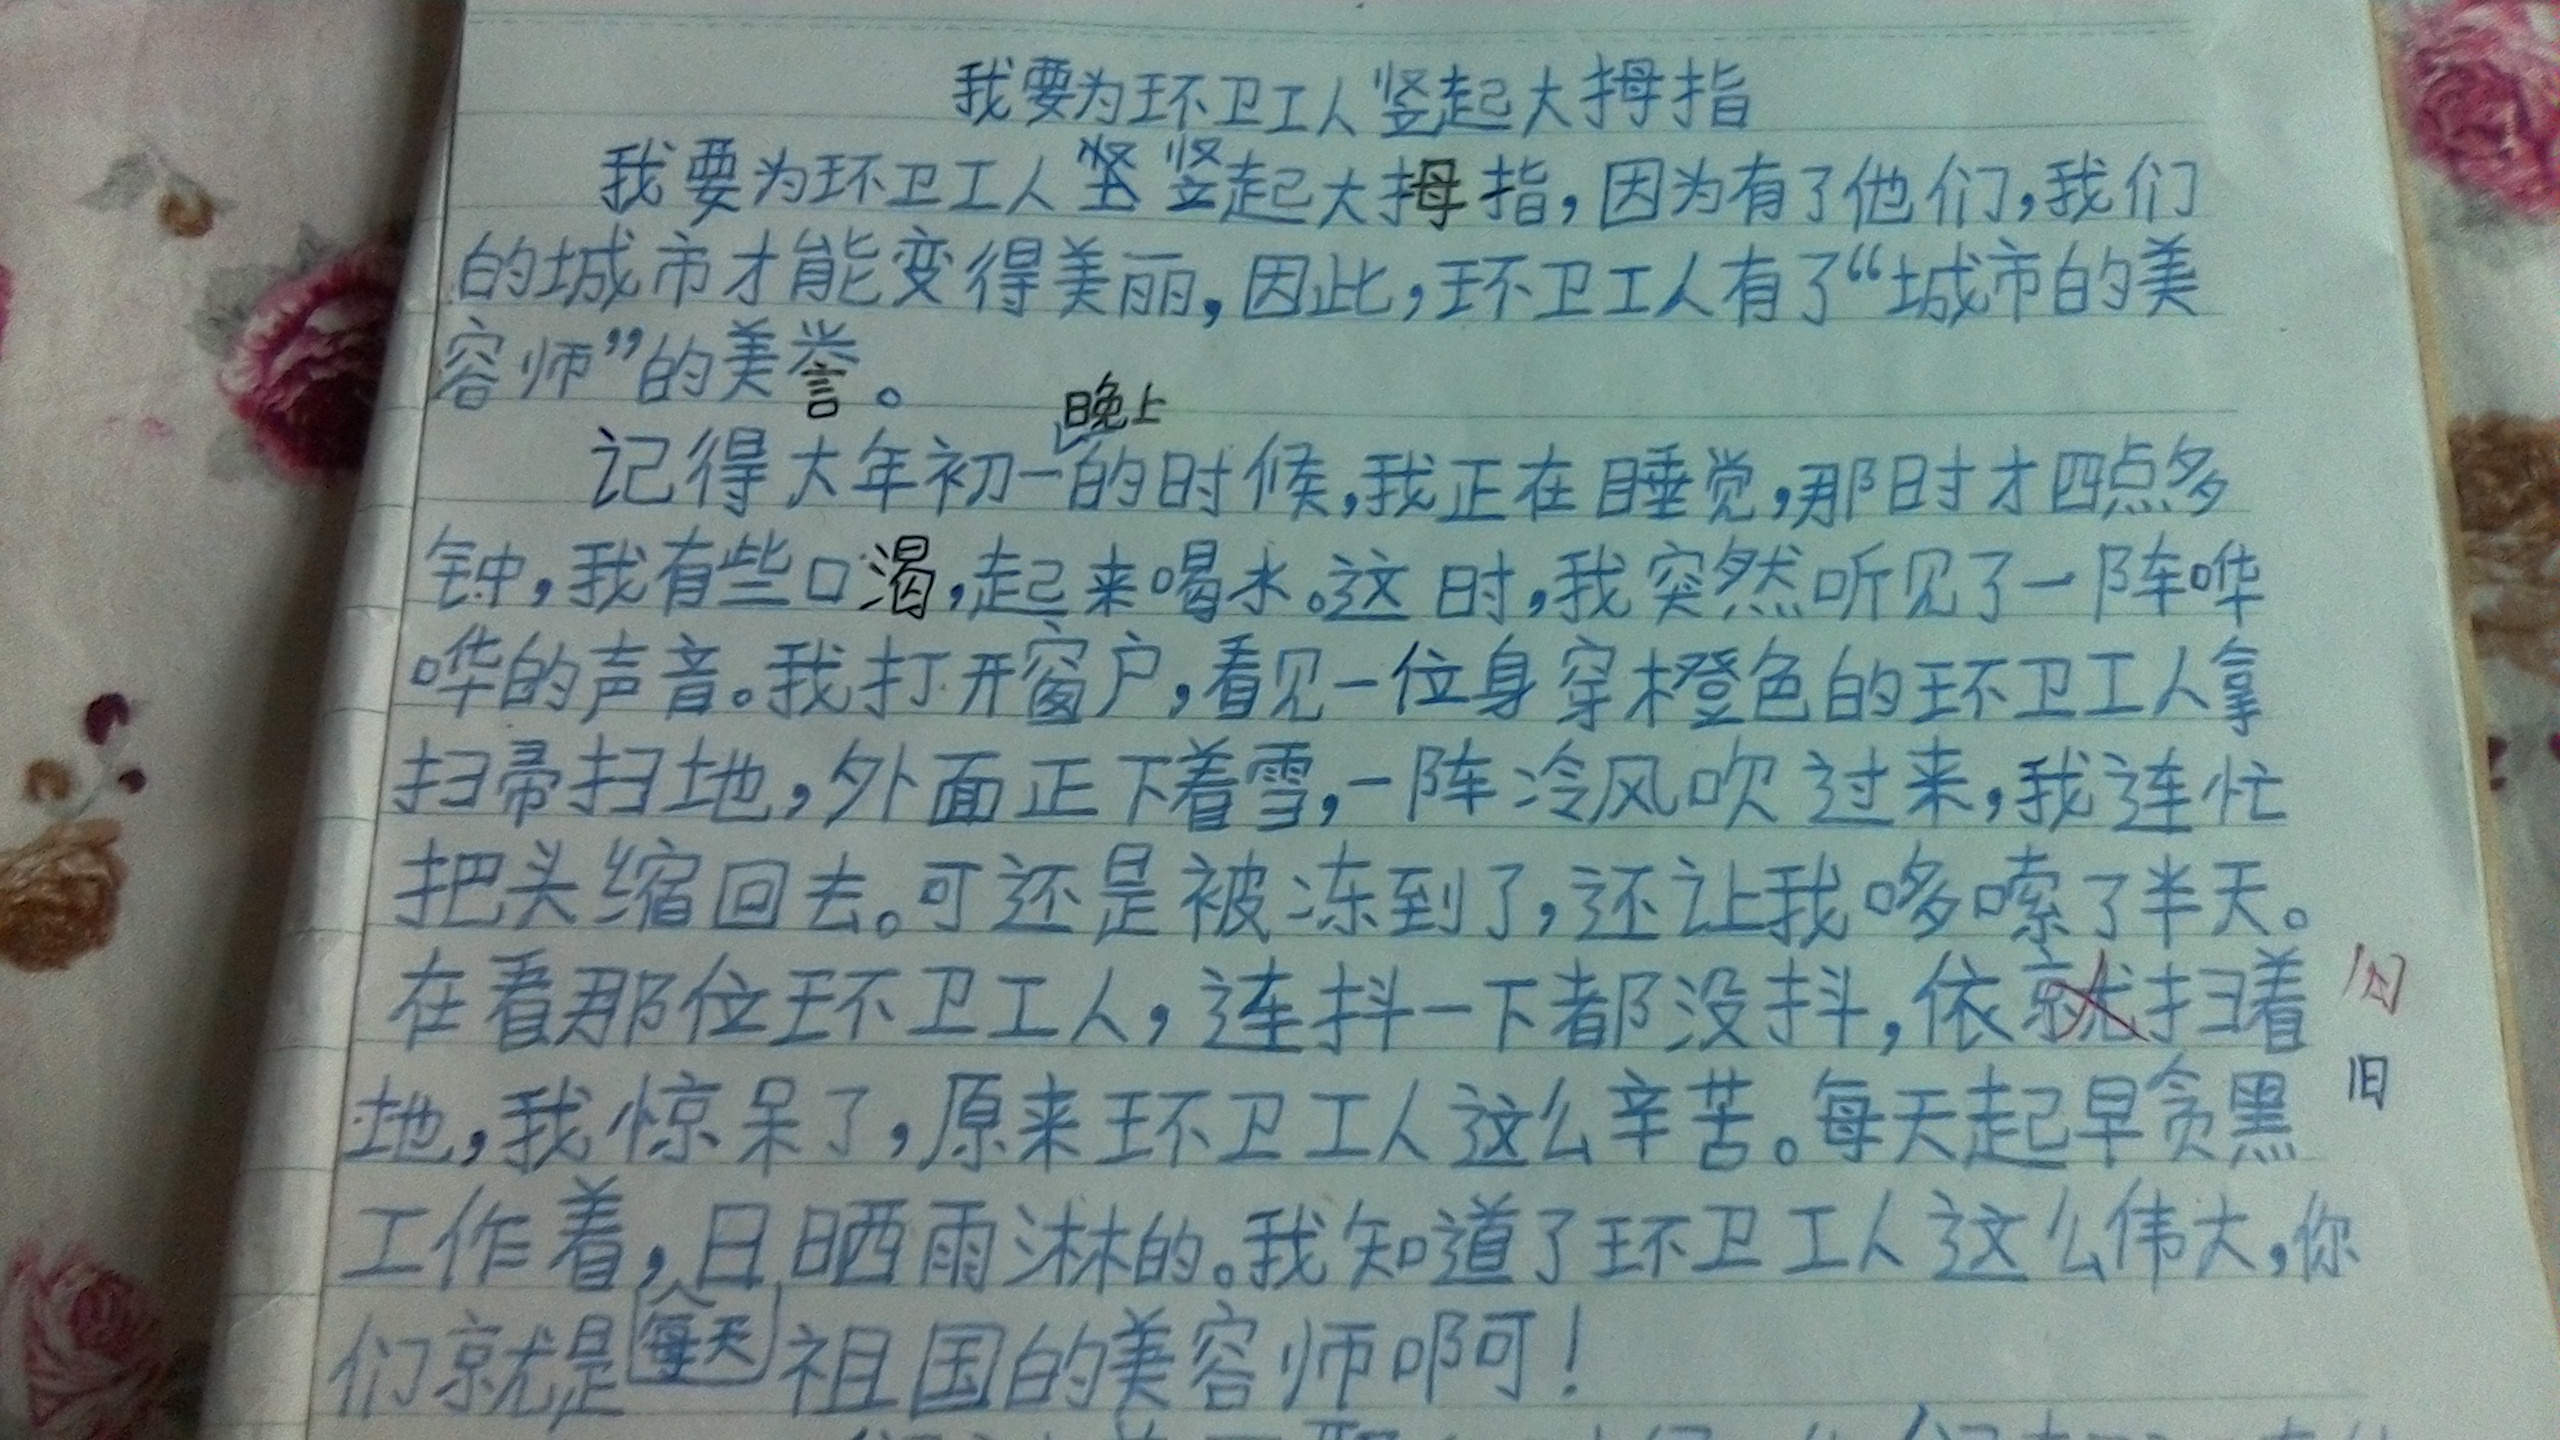 我要为环卫工人竖起大拇指
我要为环卫工人竖起大拇指,因为有了他们,我们
的城市才能变得美丽,因此,环卫工人有了“城市的美
容师”的美誉。
晚上
记得大年初一的时候,我正在睡觉,那时才四点多
钟,我有些口渴,起来喝水。这时,我突然听见了一阵哗
哗的声音。我打开窗户,看见一位身穿橙色的环卫工人拿
扫帚扫地,外面正下着雪,一阵冷风吹过来,我连忙
把头缩回去。可还是被冻到了,还让我哆嗦了半天。
在看那位环卫工人,连抖一下都没抖,依就扫着
旧
地,我惊呆了,原来环卫工人这么辛苦。每天起早贪黑
工作着,日晒雨淋的。我知道了环卫工人这么伟大,你
每天
们就是祖国的美容师啊!